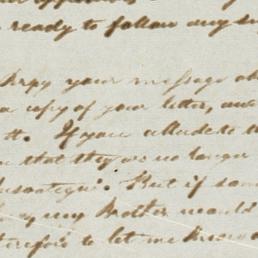 ready to follow any
your message
a copy of your letter, and
it. If you allude to
that they are no longer
But if some
my Brother would
therefore to let me know